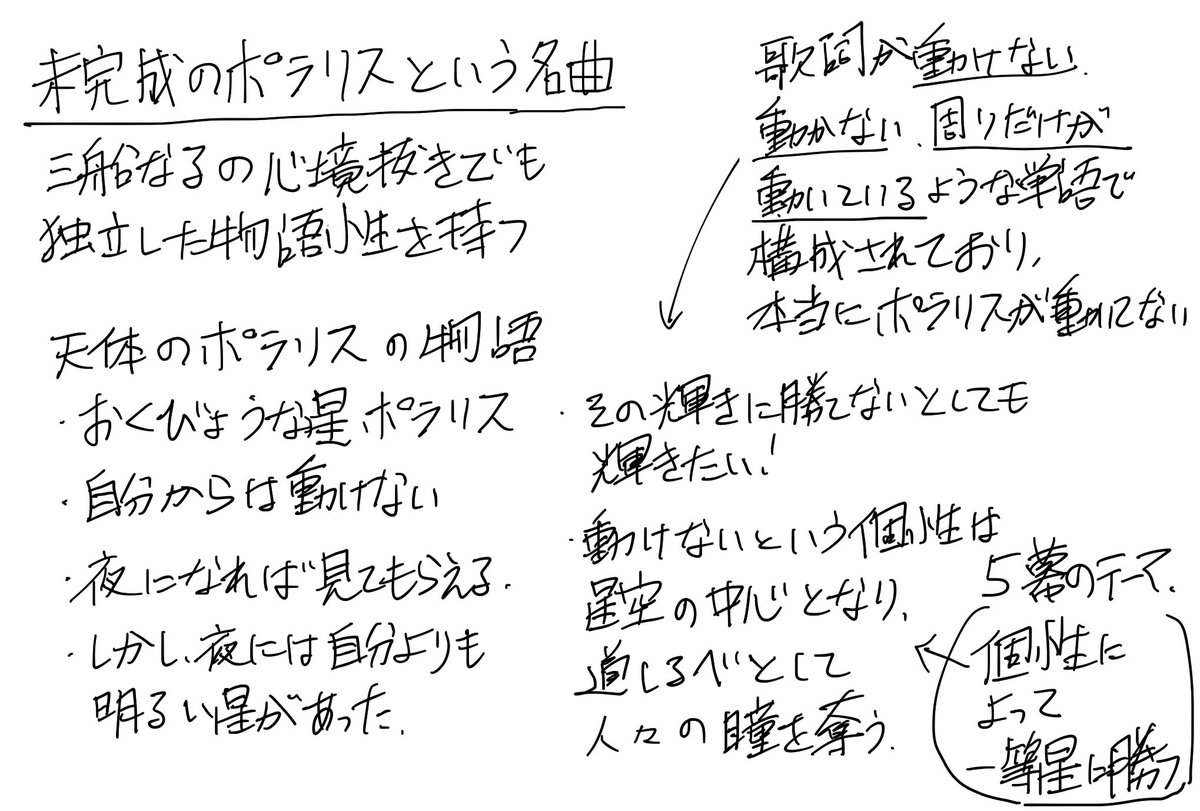 未完成のポラリスという名曲
三船なるの心境抜きでも
独立した物語性を持つ
天体のポラリスの物語
・おくびょうな星ポラリス
・自分からは動けない
・夜になれば見てもらえる.
・しかし、夜には自分よりも
明るい星があった.
歌詞が動けない.
動かない、周りだけが
動いているような単語で
構成されており、
本当にポラリスが動いてない
・その輝きに勝てないとしても
輝きたい!
・動けないという個性は
星空の中心となり、
道しるべとして
人々の瞳を奪う.
5幕のテーマ.
個性に
よって
一等星に勝つ